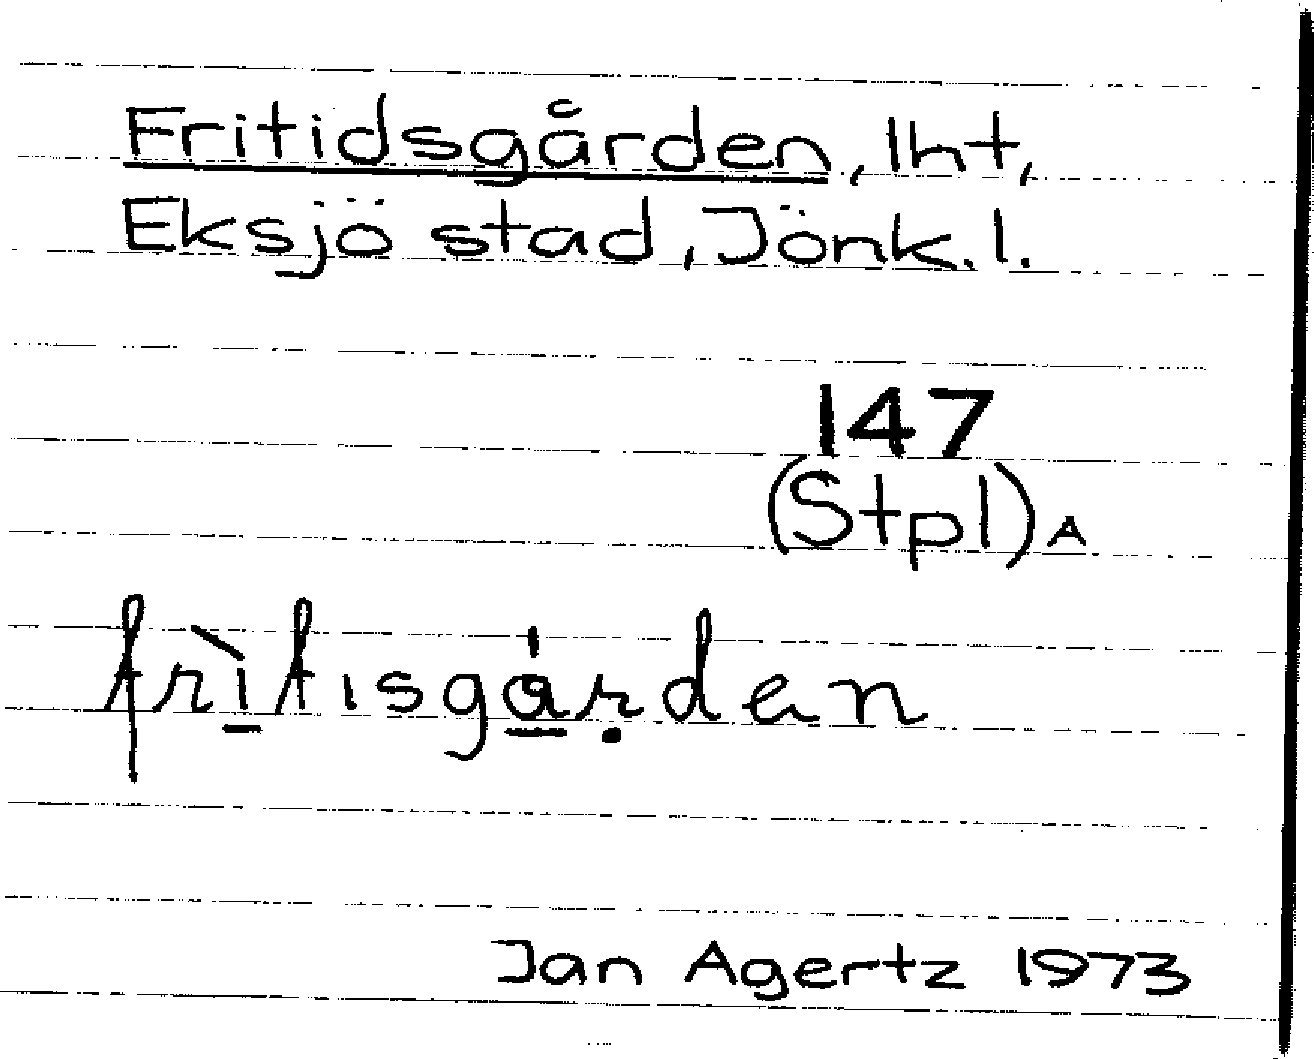 Fritidsgården, lht,
Eksjö stad, Jönk. l.
147
(Stpl) A
frìtisgården
Jan Agertz 1973